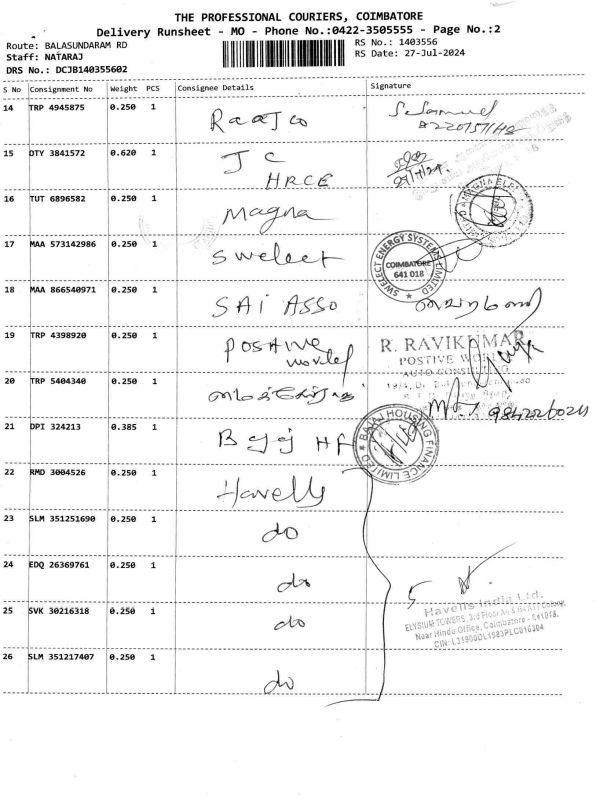 THE PROFESSIONAL COURIERS, COIMBATORE
Delivery Runsheet - MO - Phone No.:0422-3505555 - Page No.:2
Route: BALASUNDARAM RD
Staff: NATARAJ
DRS No.: DCJB140355602
RS No.: 1403556
RS Date: 27-Jul-2024
S No Consignment No Weight PCS Consignee Details Signature
14 TRP 4945875 0.250 1 Raajco
15 OTY 3841572 0.620 1 JC
HRCE
16 TUT 6896582 0.250 1 Magna
17 MAA 573142986 0.250 1 Swelect
SWELECT ENERGY SYSTEMS LIMITED
COIMBATORE
641 018
18 MAA 866540971 0.250 1 SAI ASSO
19 TRP 4398920 0.250 1 Positive
R. RAVIKUMAR
POSTIVE
AUTO CONSULTING
20 TRP 5404340 0.250 1
21 DPI 324213 0.385 1 Bajaj HF
BAJAJ HOUSING FINANCE LIMITED
22 RMD 3004526 0.250 1 Havells
23 SLM 351251690 0.250 1 do
24 EDQ 26369761 0.250 1 do
25 SVK 30216318 0.250 1 do
5
Havells India Ltd.
ELYSIUM TOWERS, 3rd Floor
Near Hindu Office, Coimbatore - 641018.
CIN: L31900DL1983PLC016304
26 SLM 351217407 0.250 1 do